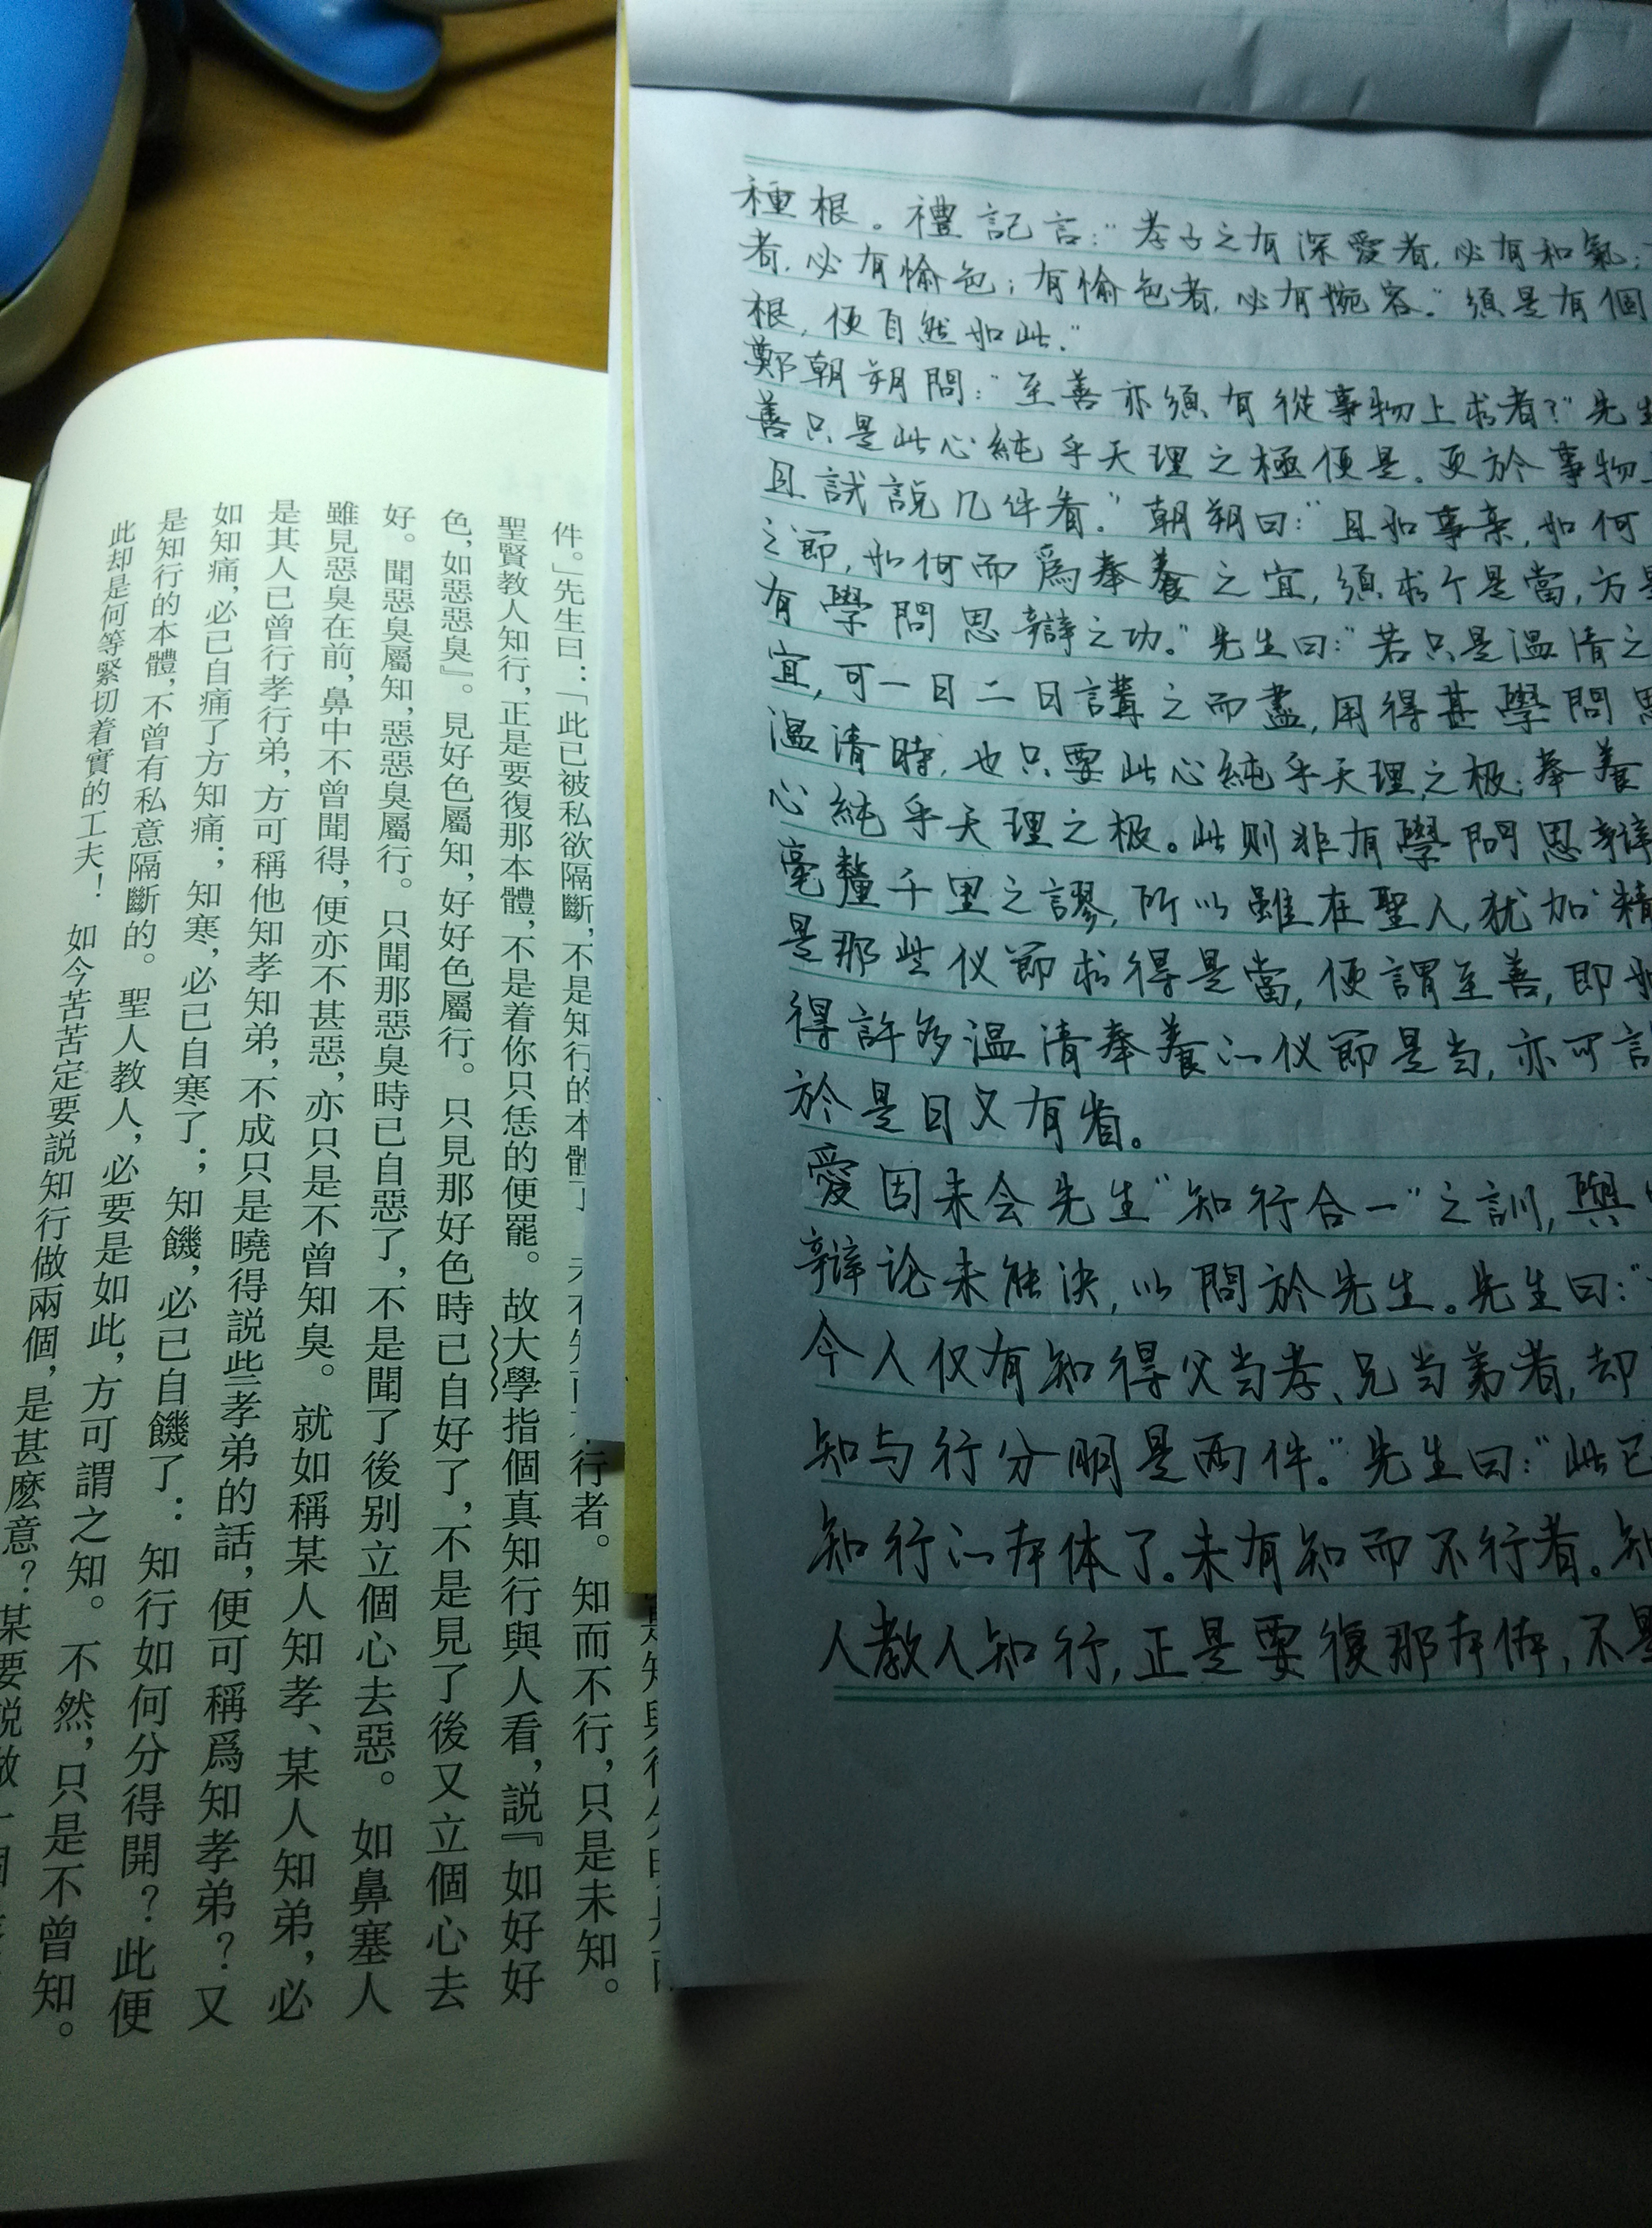 件。」先生曰：「此已被私欲隔斷，不是知行的本體了
行者。知而不行，只是未知。
聖賢教人知行，正是要復那本體，不是着你只恁的便罷。故大學指個真知行與人看，説『如好好
色，如惡惡臭』。見好色屬知，好好色屬行。只見那好色時已自好了，不是見了後又立個心去
好。聞惡臭屬知，惡惡臭屬行。只聞那惡臭時已自惡了，不是聞了後别立個心去惡。如鼻塞人
雖見惡臭在前，鼻中不曾聞得，便亦不甚惡，亦只是不曾知臭。就如稱某人知孝、某人知弟，必
是其人已曾行孝行弟，方可稱他知孝知弟，不成只是曉得説些孝弟的話，便可稱爲知孝弟？又
如知痛，必已自痛了方知痛；知寒，必已自寒了；知饑，必已自饑了：知行如何分得開？此便
是知行的本體，不曾有私意隔斷的。聖人教人，必要是如此，方可謂之知。不然，只是不曾知。
此却是何等緊切着實的工夫！如今苦苦定要説知行做兩個，是甚麽意？某要説做一個
種根。禮記言：“孝子之有深愛者，必有和氣；
者，必有愉色；有愉色者，必有婉容。”須是有個
根，便自然如此。”
鄭朝朔問：“至善亦須有從事物上求者？”先生
善只是此心純乎天理之極便是。更於事物上
且試説几件看。”朝朔曰：“且如事亲，如何
之節，如何而爲奉養之宜，須求个是當，方是
有學問思辯之功。”先生曰：“若只是温清之
宜，可一日二日講之而盡，用得甚學問思
温清時，也只要此心純乎天理之极；奉養
心純乎天理之极。此則非有學問思辯
毫釐千里之謬，所以雖在聖人，犹加“精
是那些仪節求得是當，便謂至善，即如
得許多温清奉養的仪節是当，亦可言
於是日又有省。
愛因未会先生“知行合一”之訓，與
辯论未能决，以問於先生。先生曰：“
今人仅有知得父当孝、兄当弟者，却
知与行分明是两件。”先生曰：“此已
知行的本体了。未有知而不行者。知
人教人知行，正是要復那本体，不是